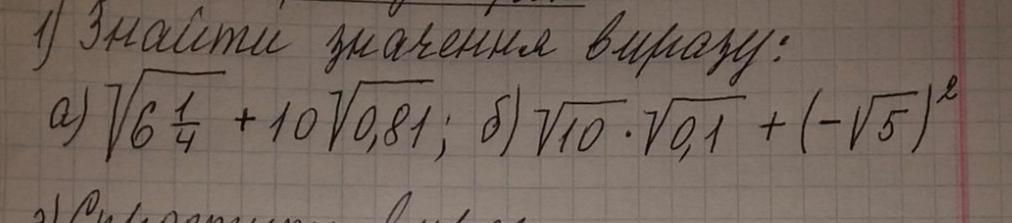 1) Знайти значення виразу:
а) √6 1/4 + 10√0,81; б) √10 · √0,1 + (-√5)²